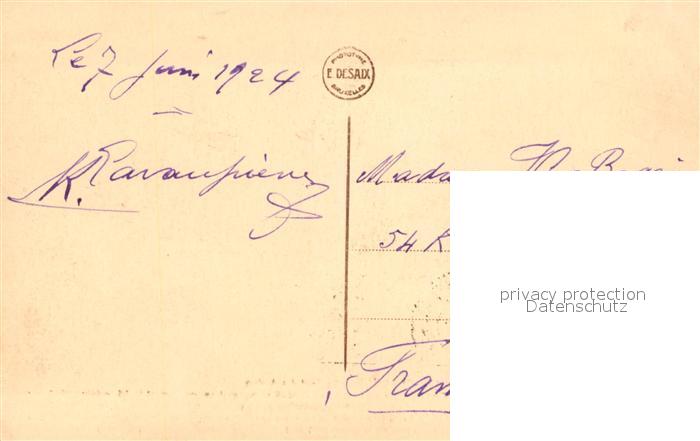 Le 7 Juni 1924
PHOTOTYPIE
E. DESAIX
BRUXELLES
K.
Mada
54 R
Fran
privacy protection
Datenschutz